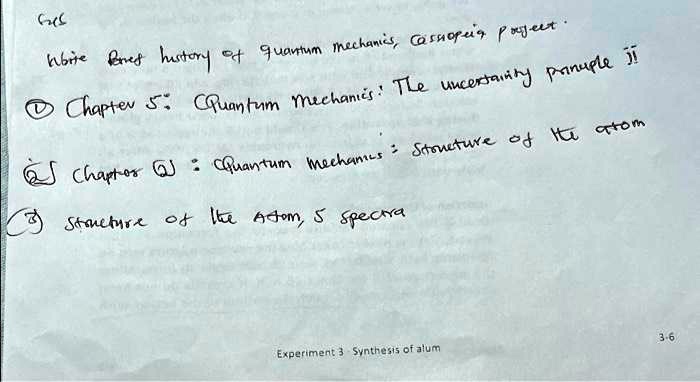 Write Brief history of quantum mechanics, Cassiopeia project.
① Chapter 5: Quantum mechanics: The uncertainity prinuple ii
② Chapter ② : Quantum mechanics : Structure of the atom
③ Structure of the Atom, 5 spectra
Experiment 3 · Synthesis of alum
3-6